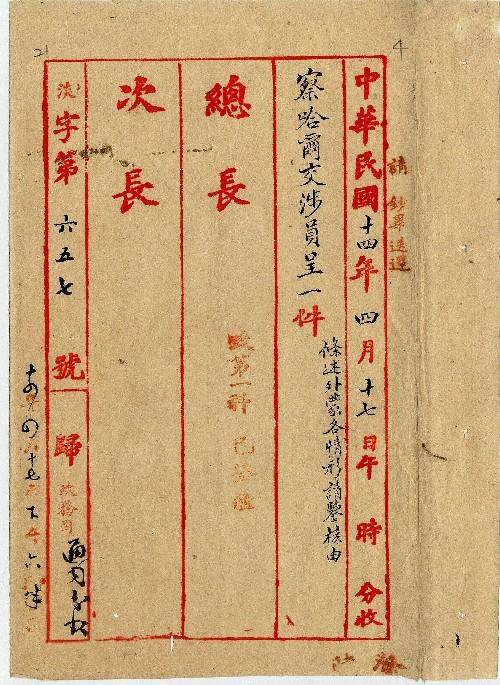 請鈔畢送還
中華民國十四年四月十七日午時分收
察哈爾交涉員呈一件
條述外蒙各情形請鑒核由
總長
第一科已
次長
淡字第六五七號歸政務司
十四 四 十七 下午六
4